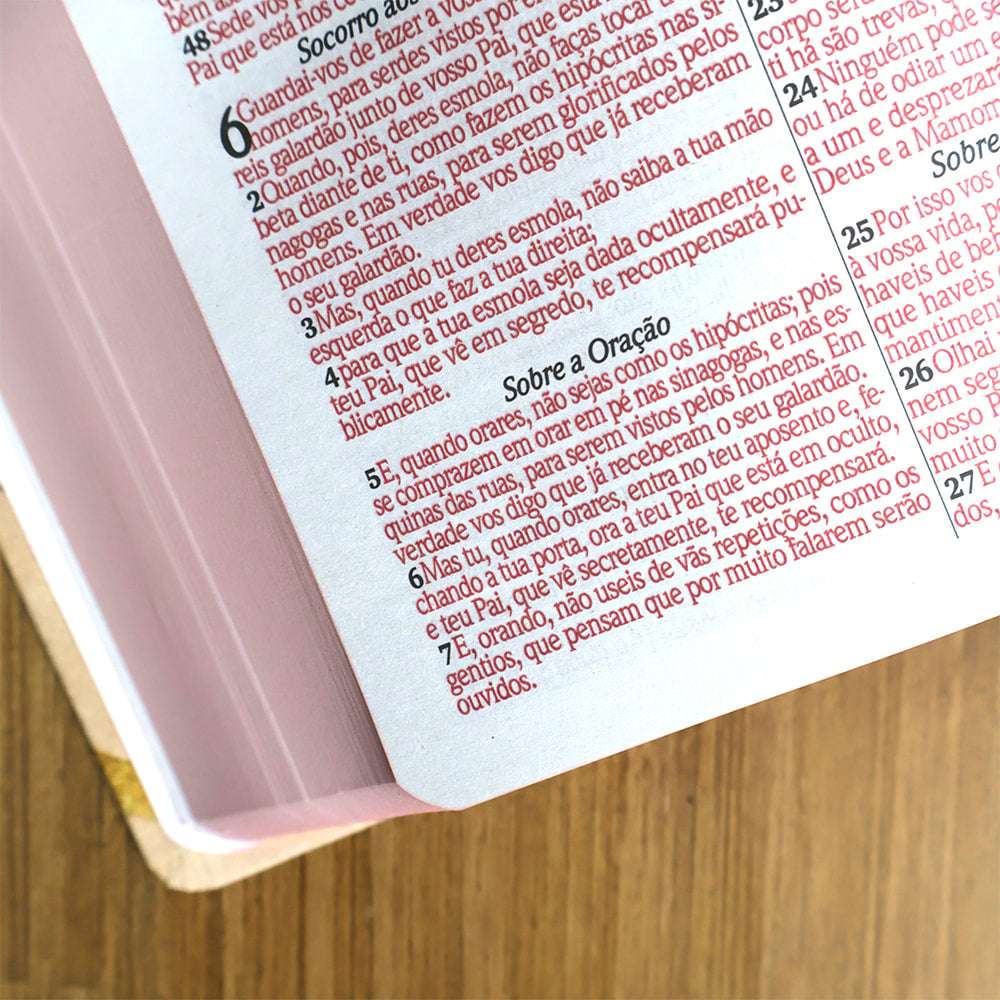 bem as
48Sede vos p
Pai que está nos c
Socorro aos
6 Guardai-vos de fazer a vos
homens, para serdes vistos por e
reis galardão junto de vosso Pai, que está
2Quando, pois, deres esmola, não faças tocar t
beta diante de ti, como fazem os hipócritas nas si-
nagogas e nas ruas, para serem glorificados pelos
homens. Em verdade vos digo que já receberam
o seu galardão.
3Mas, quando tu deres esmola, não saiba a tua mão
esquerda o que faz a tua direita;
4para que a tua esmola seja dada ocultamente, e
teu Pai, que vê em segredo, te recompensará pu-
blicamente.
Sobre a Oração
5E, quando orares, não sejas como os hipócritas; pois
se comprazem em orar em pé nas sinagogas, e nas es-
quinas das ruas, para serem vistos pelos homens. Em
verdade vos digo que já receberam o seu galardão.
6Mas tu, quando orares, entra no teu aposento e, fe-
chando a tua porta, ora a teu Pai que está em oculto,
e teu Pai, que vê secretamente, te recompensará.
7E, orando, não useis de vãs repetições, como os
gentios, que pensam que por muito falarem serão
ouvidos.
23
corpo ser
ti há são trevas,
24Ninguém pode s
ou há de odiar um
a um e desprezar
Deus e a Mamom
Sobre
25Por isso vos
à vossa vida, p
haveis de beb
que haveis
mantimen
26Olhai
nem seg
vosso P
muito
27E
dos,